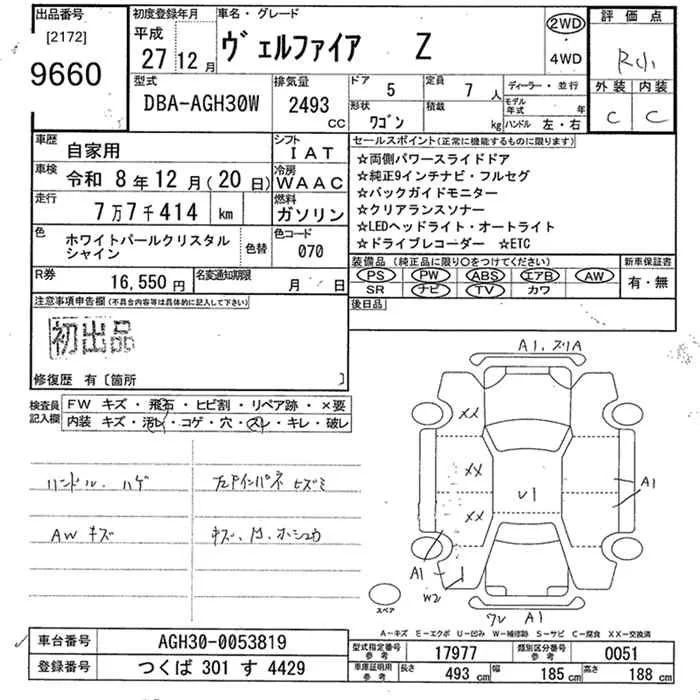 出品番号
[2172]
9660
初度登録年月
平成
27 12月
車名・グレード
ヴェルファイア Z
2WD
・
4WD
評価点
R小
外装 内装
C C
型式
DBA-AGH30W
排気量
2493
CC
ドア 5
定員 7 人
形状 ワゴン
積載 kg
ディーラー・並行
モデル年式 年
ハンドル 左・右
車歴 自家用
シフト IAT
車検 令和 8年12月(20日)
冷房 WAAC
走行 7万7千414 km
燃料 ガソリン
色 ホワイトパールクリスタル
シャイン
色替
色コード 070
R券 16,550円
名変通知期限 月 日
セールスポイント(正常に機能するものに限ります)
☆両側パワースライドドア
☆純正9インチナビ・フルセグ
☆バックガイドモニター
☆クリアランスソナー
☆LEDヘッドライト・オートライト
☆ドライブレコーダー ☆ETC
装備品(純正品に限り○をつけてください)
PS PW ABS エアB AW
SR ナビ TV カワ
新車保証書
有・無
後日品
注意事項申告欄(不具合内容等は具体的に記入して下さい)
初出品
修復歴 有〔箇所 〕
検査員記入欄
FW キズ・飛石・ヒビ割・リペア跡・×要
内装 キズ・汚レ・コゲ・穴・スレ・キレ・破レ
ハンドル ハゲ
AW キズ
左Fインパネ ヒズミ
キズ、凹、ホシュウ
A1、スリA
XX
XX
XX
U1
A1
A1
W2
ワレ A1
スペア
A-キズ E-エクボ U-凹み W-補修跡 S-サビ C-腐食 XX-交換済
車台番号 AGH30-0053819
登録番号 つくば 301 す 4429
型式指定番号参考 17977
類別区分番号参考 0051
車庫証明用参考 長さ 493 cm 幅 185 cm 高さ 188 cm